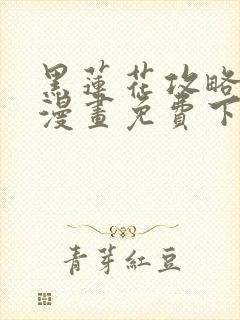 黑蓮花攻略
漫畫免費下
青芽紅豆